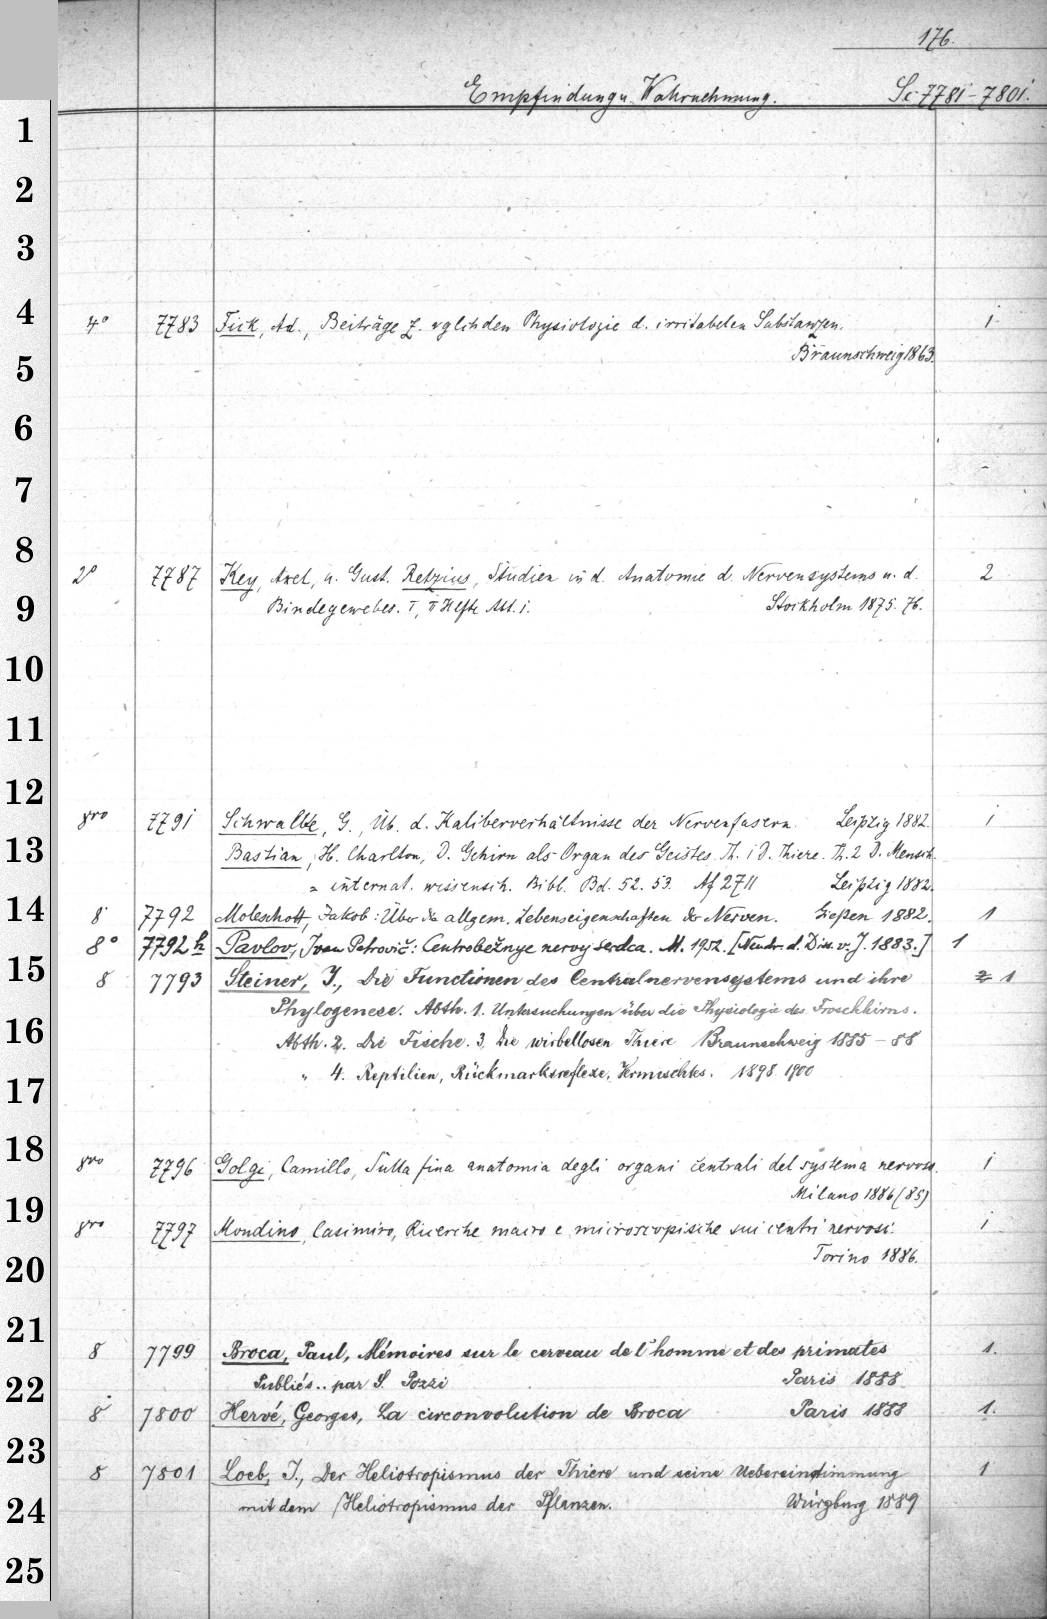 176.
Empfindung u. Wahrnehmung. Sc 7781-7801.
1
2
3
4
4° 7783 Fick, Ad., Beiträge z. vglchden Physiologie d. irritabelen Substanzen. 1
Braunschweig 1863.
5
6
7
8
2° 7787 Key, Axel, u. Gust. Retzius, Studien in d. Anatomie d. Nervensystems u. d. 2
9
Bindegewebes. I, II Hefte Abt. 1. Stockholm 1875. 76.
10
11
12
gro 7791 Schwalbe, G., Üb. d. Kaliberverhältnisse der Nervenfasern. Leipzig 1882. 1
13
Bastian, H. Charlton, D. Gehirn als Organ des Geistes. Th. 1 D. Thiere. Th. 2 D. Mensch.
= internat. wissensch. Bibl. Bd. 52. 53. Af 2711 Leipzig 1882.
14
8 7792 Moleshott, Jakob: Über die allgem. Lebenseigenschaften der Nerven. Gießen 1882. 1
8° 7792 h Pavlov, Ivan Petrovič: Centrobežnye nervy serdca. M. 1952. [Neudr. d. Diss. v. J. 1883.] 1
15
8 7793 Steiner, J., Die Functionen des Centralnervensystems und ihre 2 1
Phylogenese. Abth. 1. Untersuchungen über die Physiologie des Froschhirns.
16
Abth. 2. Die Fische. 3. Die wirbellosen Thiere Braunschweig 1885-88
17
" 4. Reptilien, Rückmarksreflexe, Vermischtes. 1898 1900
18
gro 7796 Golgi, Camillo, Sulla fina anatomia degli organi centrali del systema nervoso. 1
Milano 1886 (85)
19
gro 7797 Mondino, Casimiro, Ricerche macro e microscopische sui centri nervosi. 1
Torino 1886.
20
21
8 7799 Broca, Paul, Mémoires sur le cerveau de l'homme et des primates 1.
22
Publiés.. par S. Pozzi Paris 1888
8 7800 Hervé, Georges, La circonvolution de Broca Paris 1888 1.
23
8 7801 Loeb, J., Der Heliotropismus der Thiere und seine Uebereinstimmung 1
24
mit dem Heliotropismus der Pflanzen. Würzburg 1889
25